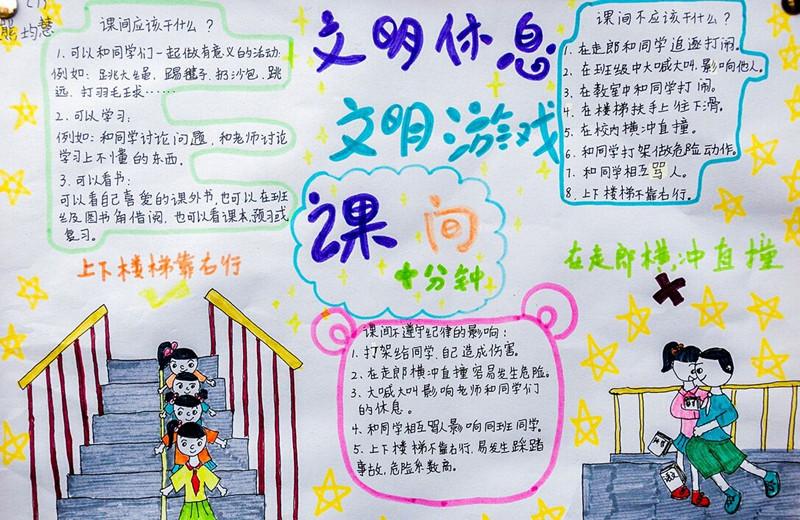 熊均慧
课间应该干什么？
1.可以和同学们一起做有意义的活动
例如：跳大绳、踢毽子、扔沙包、跳
远、打羽毛球……
2.可以学习：
例如：和同学讨论问题，和老师讨论
学习上不懂的东西。
3.可以看书：
可以看自己喜爱的课外书，也可以在班
级图书角借阅，也可以看课本，预习或
复习。
文明休息
文明游戏
课间
十分钟
课间不应该干什么？
1.在走郎和同学追逐打闹。
2.在班级中大喊大叫，影响他人。
3.在教室中和同学打闹。
4.在楼梯扶手上往下滑。
5.在校内横冲直撞。
6.和同学打架做危险动作。
7.和同学相互骂人。
8.上下楼梯不靠右行。
上下楼梯靠右行
在走郎横冲直撞
课间不遵守纪律的影响：
1.打架给同学、自己造成伤害。
2.在走郎横冲直撞容易发生危险。
3.大喊大叫影响老师和同学们
的休息。
4.和同学相互骂人影响同班同学。
5.上下楼梯不靠右行，易发生踩踏
事故，危险系数高。